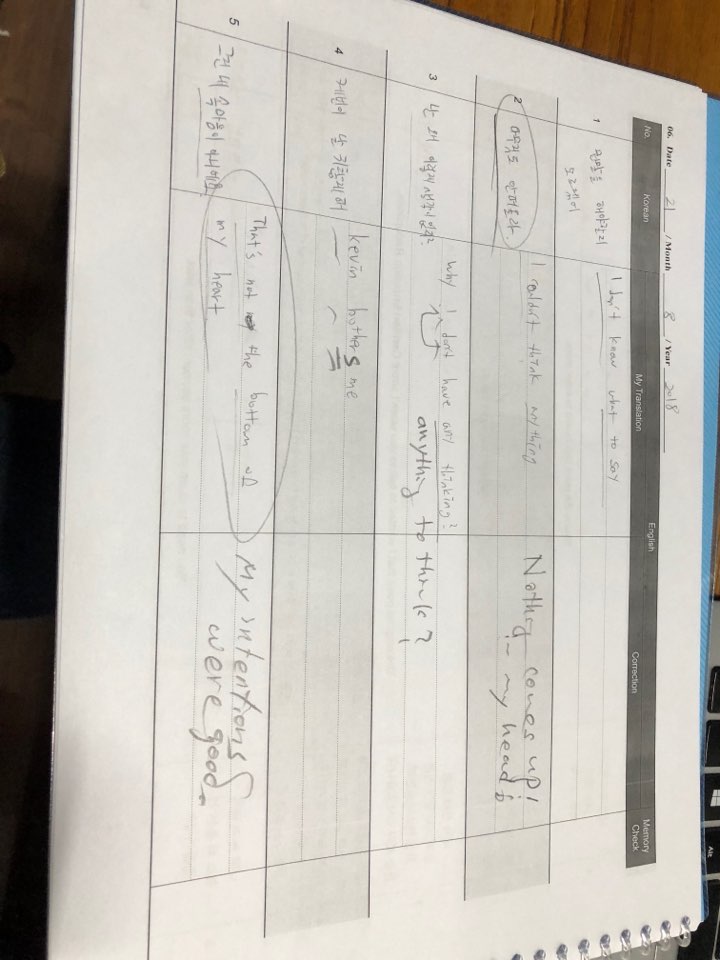 06. Date 21 / Month 8 / Year 2018
No. Korean My Translation English Correction Memory Check
1 뭔말을 해야할지 모르겠어
I don't know what to say
2 아무것도 안떠올라.
I couldn't think anything
Nothing comes up!
in my head
3 난 왜 이렇게 생각이 없지?
why I don't have any thinking?
anything to think?
4 케빈이 날 귀찮게해
kevin bothers me
5 그건 내 속마음이 아니에요
That's not the bottom of
my heart
My intentions
were good
Alt